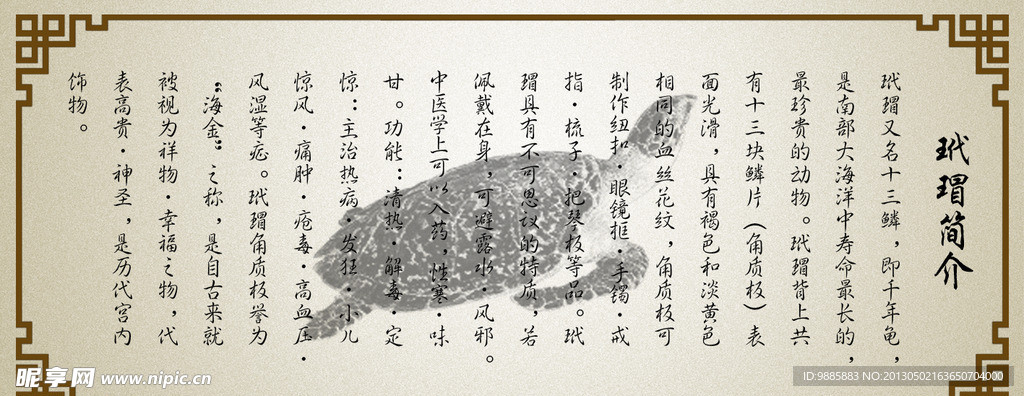 玳瑁简介
玳瑁又名十三鳞，即千年龟，
是南部大海洋中寿命最长的，
最珍贵的动物。玳瑁背上共
有十三块鳞片（角质板）表
面光滑，具有褐色和淡黄色
相间的血丝花纹，角质板可
制作纽扣·眼镜框·手镯·戒
指·梳子·把琴板等品。玳
瑁具有不可思议的特质，若
佩戴在身，可避露水·风邪。
中医学上可以入药，性寒·味
甘。功能：清热·解毒·定
惊：主治热病·发狂·小儿
惊风·痛肿·疮毒·高血压·
风湿等症。玳瑁角质板誉为
“海金”之称，是自古来就
被视为祥物·幸福之物，代
表高贵·神圣，是历代宫内
饰物。
昵享网 www.nipic.cn
ID:9885883 NO:20130502163650704000